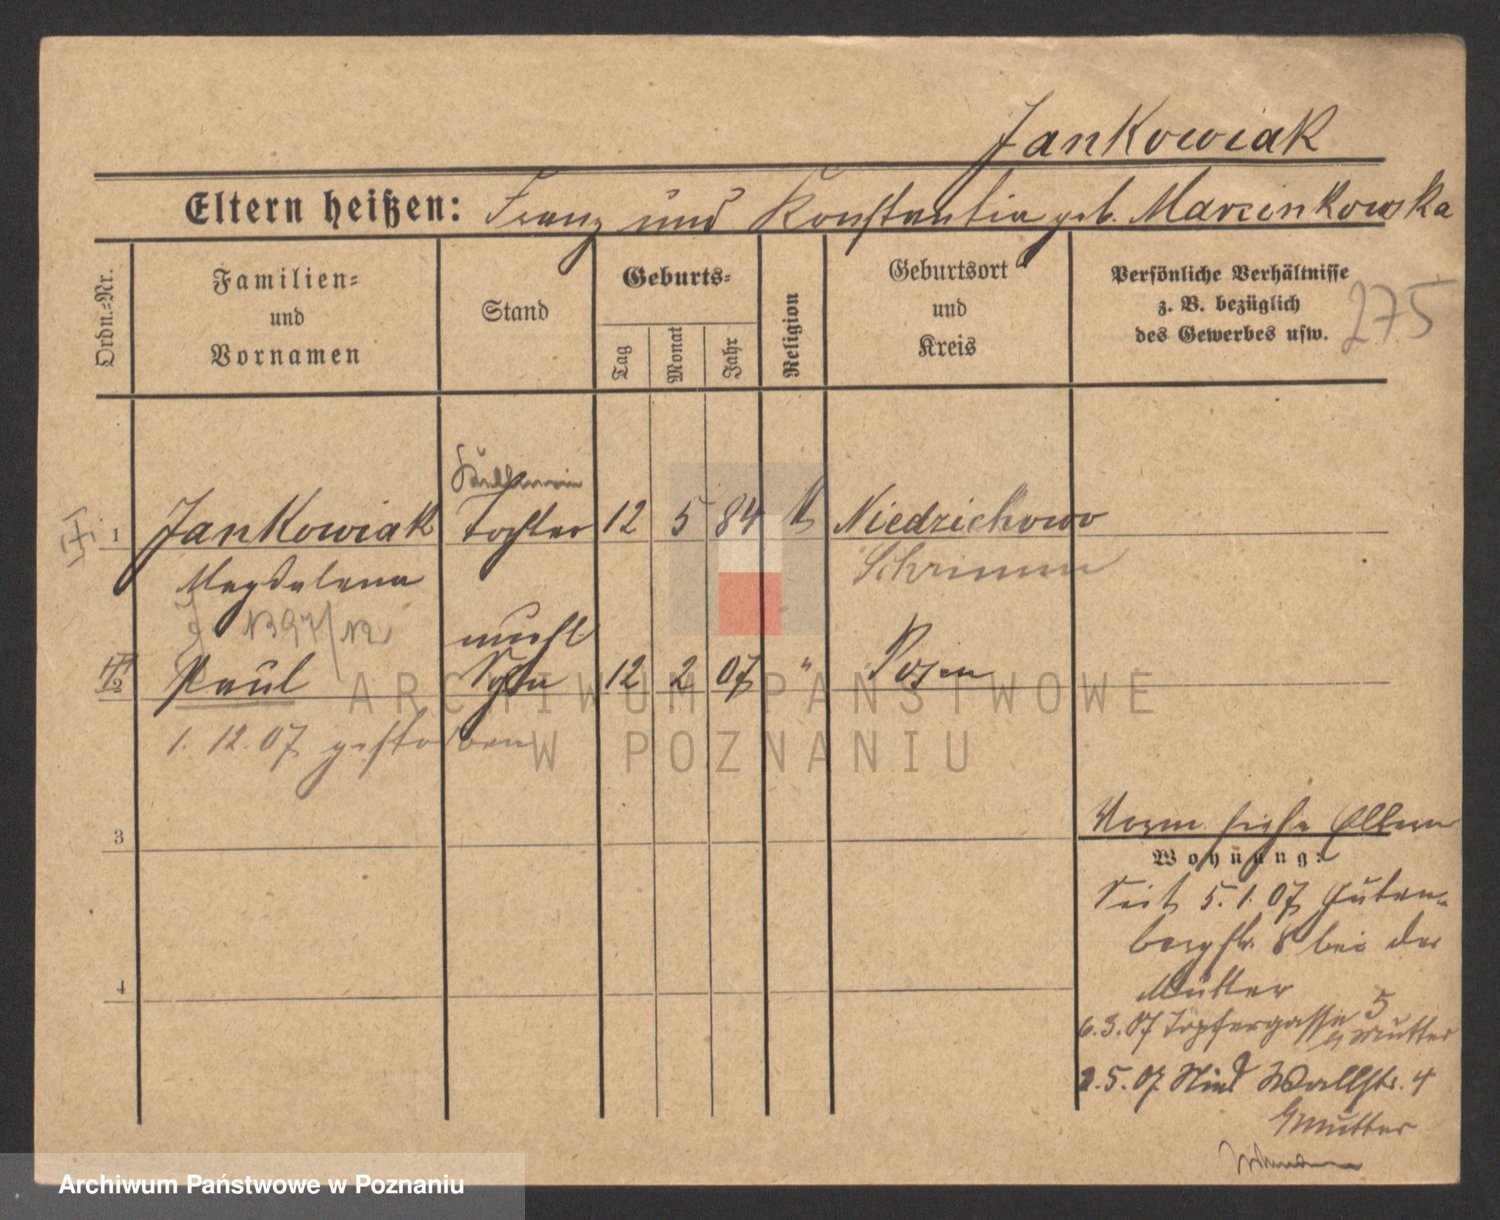 Jankowiak
Eltern heißen: Franz und Konstantia geb. Marcinkowska
Ordn.-Nr.
Familien-
und
Vornamen
Stand
Geburts-
Tag
Monat
Jahr
Religion
Geburtsort
und
Kreis
Persönliche Verhältnisse
z. B. bezüglich
des Gewerbes usw.
275
1 Jankowiak Tochter 12 5 84 k Niedzichowo
Magdalena Schrimm
unehl
2 Paul Sohn 12 2 07 " Posen
1. 12. 07 gestorben
3
Vorm siehe Eltern
Wohnung:
Seit 5. 1. 07 Guten-
bergstr. 8 bei der
4
Mutter
6. 3. 07 Töpfergasse 5
b Mutter
2. 5. 07 Wallstr. 4
Mutter
ARCHIWUM PAŃSTWOWE
W POZNANIU
Archiwum Państwowe w Poznaniu